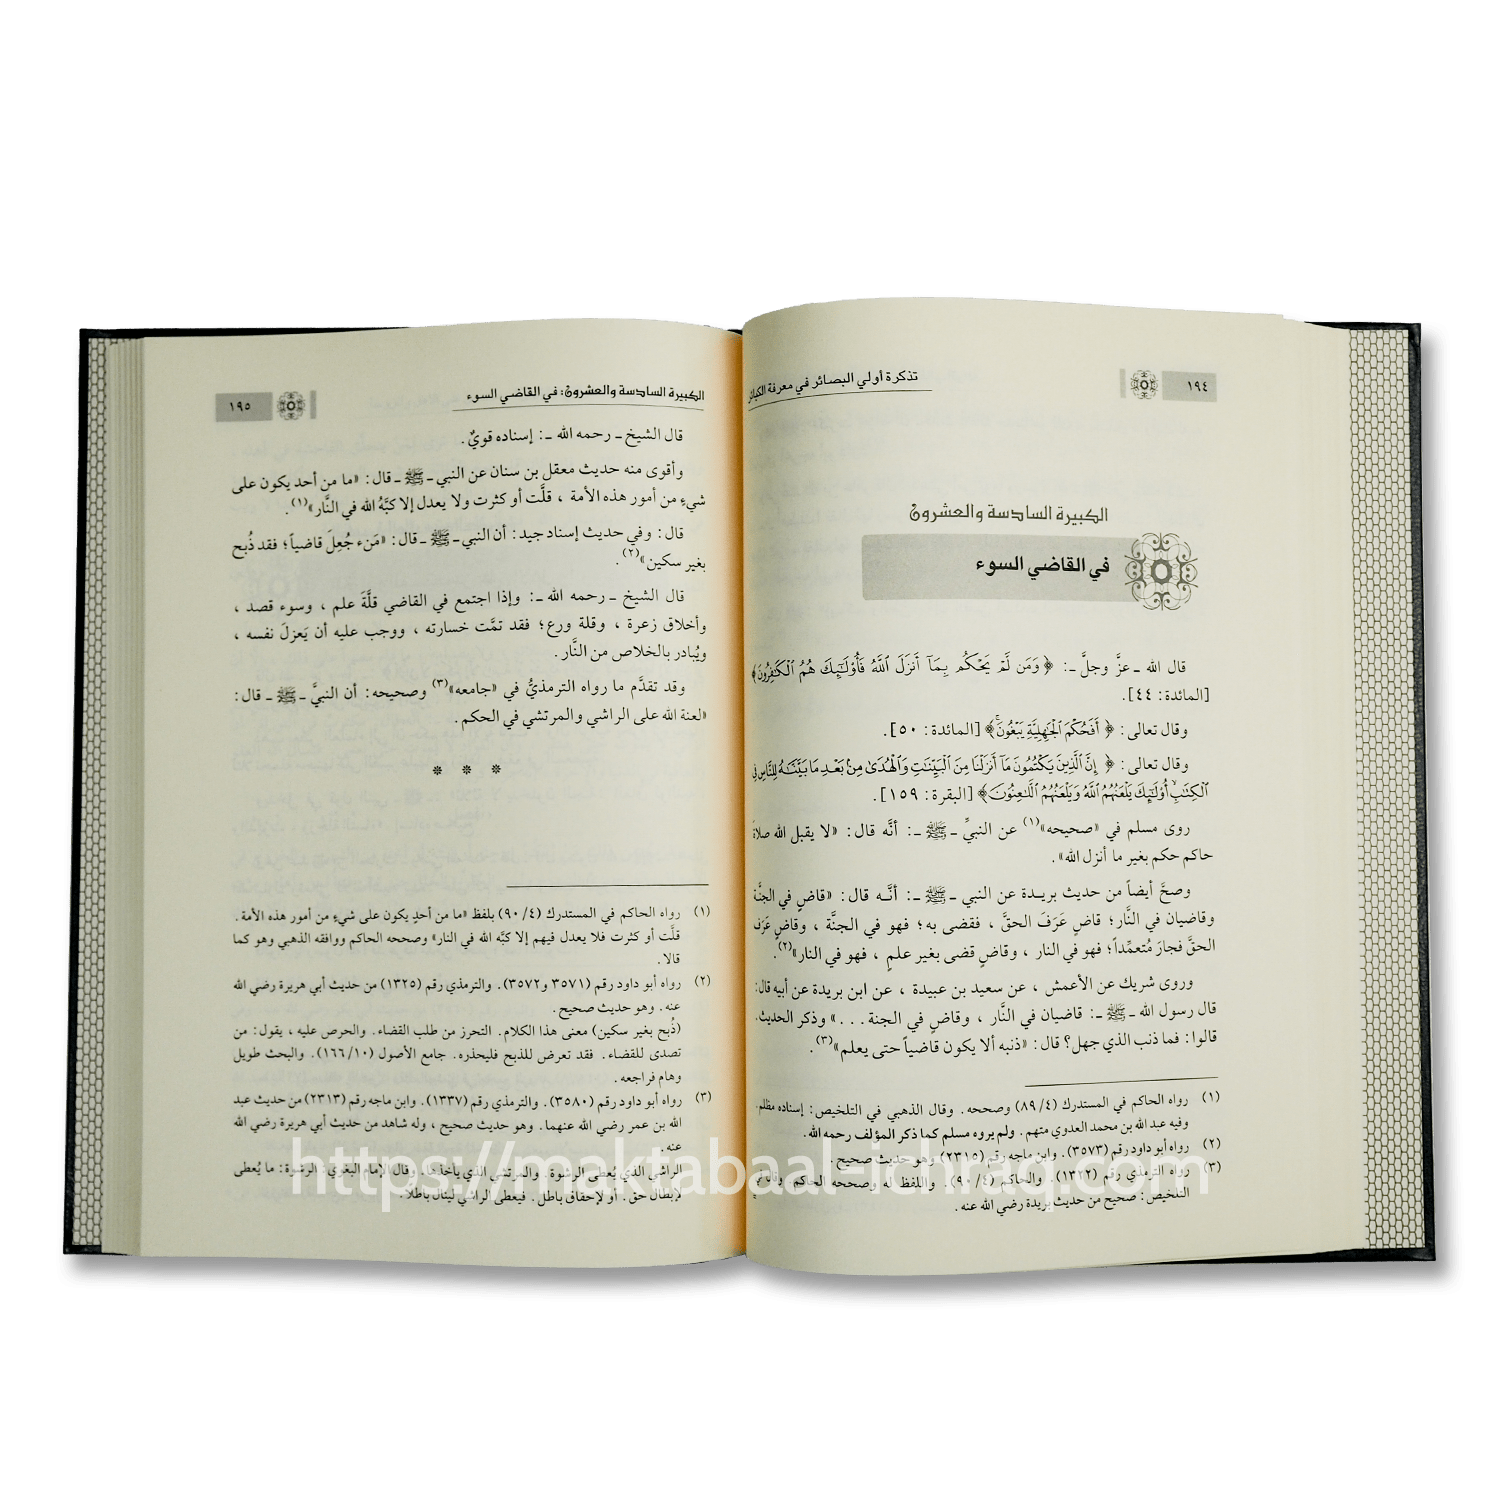 ١٩٤
تذكرة أولي البصائر في معرفة الكبائر
الكبيرة السادسة والعشرون
في القاضي السوء
قال الله ـ عزَّ وجلَّ ـ: ﴿ وَمَن لَّمْ يَحْكُم بِمَآ أَنزَلَ ٱللَّهُ فَأُوْلَـٰٓئِكَ هُمُ ٱلْكَـٰفِرُونَ﴾
[المائدة: ٤٤].
وقال تعالى: ﴿ أَفَحُكْمَ ٱلْجَـٰهِلِيَّةِ يَبْغُونَۚ﴾ [المائدة: ٥٠].
وقال تعالى: ﴿ إِنَّ ٱلَّذِينَ يَكْتُمُونَ مَآ أَنزَلْنَا مِنَ ٱلْبَيِّنَـٰتِ وَٱلْهُدَىٰ مِنۢ بَعْدِ مَا بَيَّنَّـٰهُ لِلنَّاسِ فِى
ٱلْكِتَـٰبِۙ أُوْلَـٰٓئِكَ يَلْعَنُهُمُ ٱللَّهُ وَيَلْعَنُهُمُ ٱللَّـٰعِنُونَ﴾ [البقرة: ١٥٩].
روى مسلم في «صحيحه»(١) عن النبيِّ ـ ﷺ ـ: أنَّه قال: «لا يقبل الله صلاةَ
حاكم حكم بغير ما أنزل الله».
وصحَّ أيضاً من حديث بريدة عن النبي ـ ﷺ ـ: أنَّه قال: «قاضٍ في الجنَّة
وقاضيان في النَّار؛ قاضٍ عَرَفَ الحقَّ ، فقضى به؛ فهو في الجنَّة ، وقاضٍ عَرَف
الحقَّ فجارَ مُتعمِّداً؛ فهو في النار ، وقاضٍ قضى بغير علمٍ ، فهو في النار»(٢).
وروى شريك عن الأعمش ، عن سعيد بن عبيدة ، عن ابن بريدة عن أبيه قال:
قال رسول الله ـ ﷺ ـ: قاضيان في النَّار ، وقاضٍ في الجنة . . .» وذكر الحديث.
قالوا: فما ذنب الذي جهل؟ قال: «ذنبه ألا يكون قاضياً حتى يعلم»(٣).
(١) رواه الحاكم في المستدرك (٨٩/٤) وصححه. وقال الذهبي في التلخيص: إسناده مظلم.
وفيه عبد الله بن محمد العدوي متهم. ولم يروه مسلم كما ذكر المؤلف رحمه الله.
(٢) رواه أبو داود رقم (٣٥٧٣). وابن ماجه رقم (٢٣١٥) وهو حديث صحيح.
(٣) رواه الترمذي رقم (١٣٢٢). والحاكم (٩٠/٤). واللفظ له وصححه الحاكم وقال في
التلخيص: صحيح من حديث بريدة رضي الله عنه.
الكبيرة السادسة والعشرون: في القاضي السوء
١٩٥
قال الشيخ ـ رحمه الله ـ: إسناده قويٌ.
وأقوى منه حديث معقل بن سنان عن النبي ـ ﷺ ـ قال: «ما من أحد يكون على
شيءٍ من أمور هذه الأمة ، قلَّت أو كثرت ولا يعدل إلا كبَّهُ الله في النَّار»(١).
قال: وفي حديث إسناد جيد: أن النبي ـ ﷺ ـ قال: «مَن جُعِلَ قاضياً؛ فقد ذُبح
بغير سكين»(٢).
قال الشيخ ـ رحمه الله ـ: وإذا اجتمع في القاضي قلَّة علم ، وسوء قصد ،
وأخلاق زعرة ، وقلة ورع؛ فقد تمَّت خسارته ، ووجب عليه أن يَعزلَ نفسه ،
ويُبادر بالخلاص من النَّار.
وقد تقدَّم ما رواه الترمذيُّ في «جامعه»(٣) وصحيحه: أن النبيَّ ـ ﷺ ـ قال:
«لعنة الله على الراشي والمرتشي في الحكم.
* * *
(١) رواه الحاكم في المستدرك (٩٠/٤) بلفظ «ما من أحدٍ يكون على شيءٍ من أمور هذه الأمة.
قلَّت أو كثرت فلا يعدل فيهم إلا كبَّه الله في النار» وصححه الحاكم ووافقه الذهبي وهو كما
قالا.
(٢) رواه أبو داود رقم (٣٥٧١ و٣٥٧٢). والترمذي رقم (١٣٢٥) من حديث أبي هريرة رضي الله
عنه. وهو حديث صحيح.
(ذُبح بغير سكين) معنى هذا الكلام. التحرز من طلب القضاء. والحرص عليه ، يقول: من
تصدى للقضاء. فقد تعرض للذبح فليحذره. جامع الأصول (١٦٦/١٠). والبحث طويل
وهام فراجعه.
(٣) رواه أبو داود رقم (٣٥٨٠). والترمذي رقم (١٣٣٧). وابن ماجه رقم (٢٣١٣) من حديث عبد
الله بن عمر رضي الله عنهما. وهو حديث صحيح ، وله شاهد من حديث أبي هريرة رضي الله
عنه.
الراشي الذي يُعطى الرشوة. والمرتشي الذي يأخذها. وقال الإمام البغوي: الرشوة: ما يُعطى
لإبطال حق. أو لإحقاق باطل. فيعطى الراشي لينال باطلاً.
https://maktabaal-ichraq.com